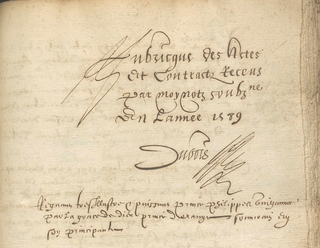 Rubricque des Actes
Et Contractz Receus
par moy notz soubz ne
En Lannee 1589
Dubois
Regnant tres Illustre et puissant prince philippes
par la grace de dieu prince souverain